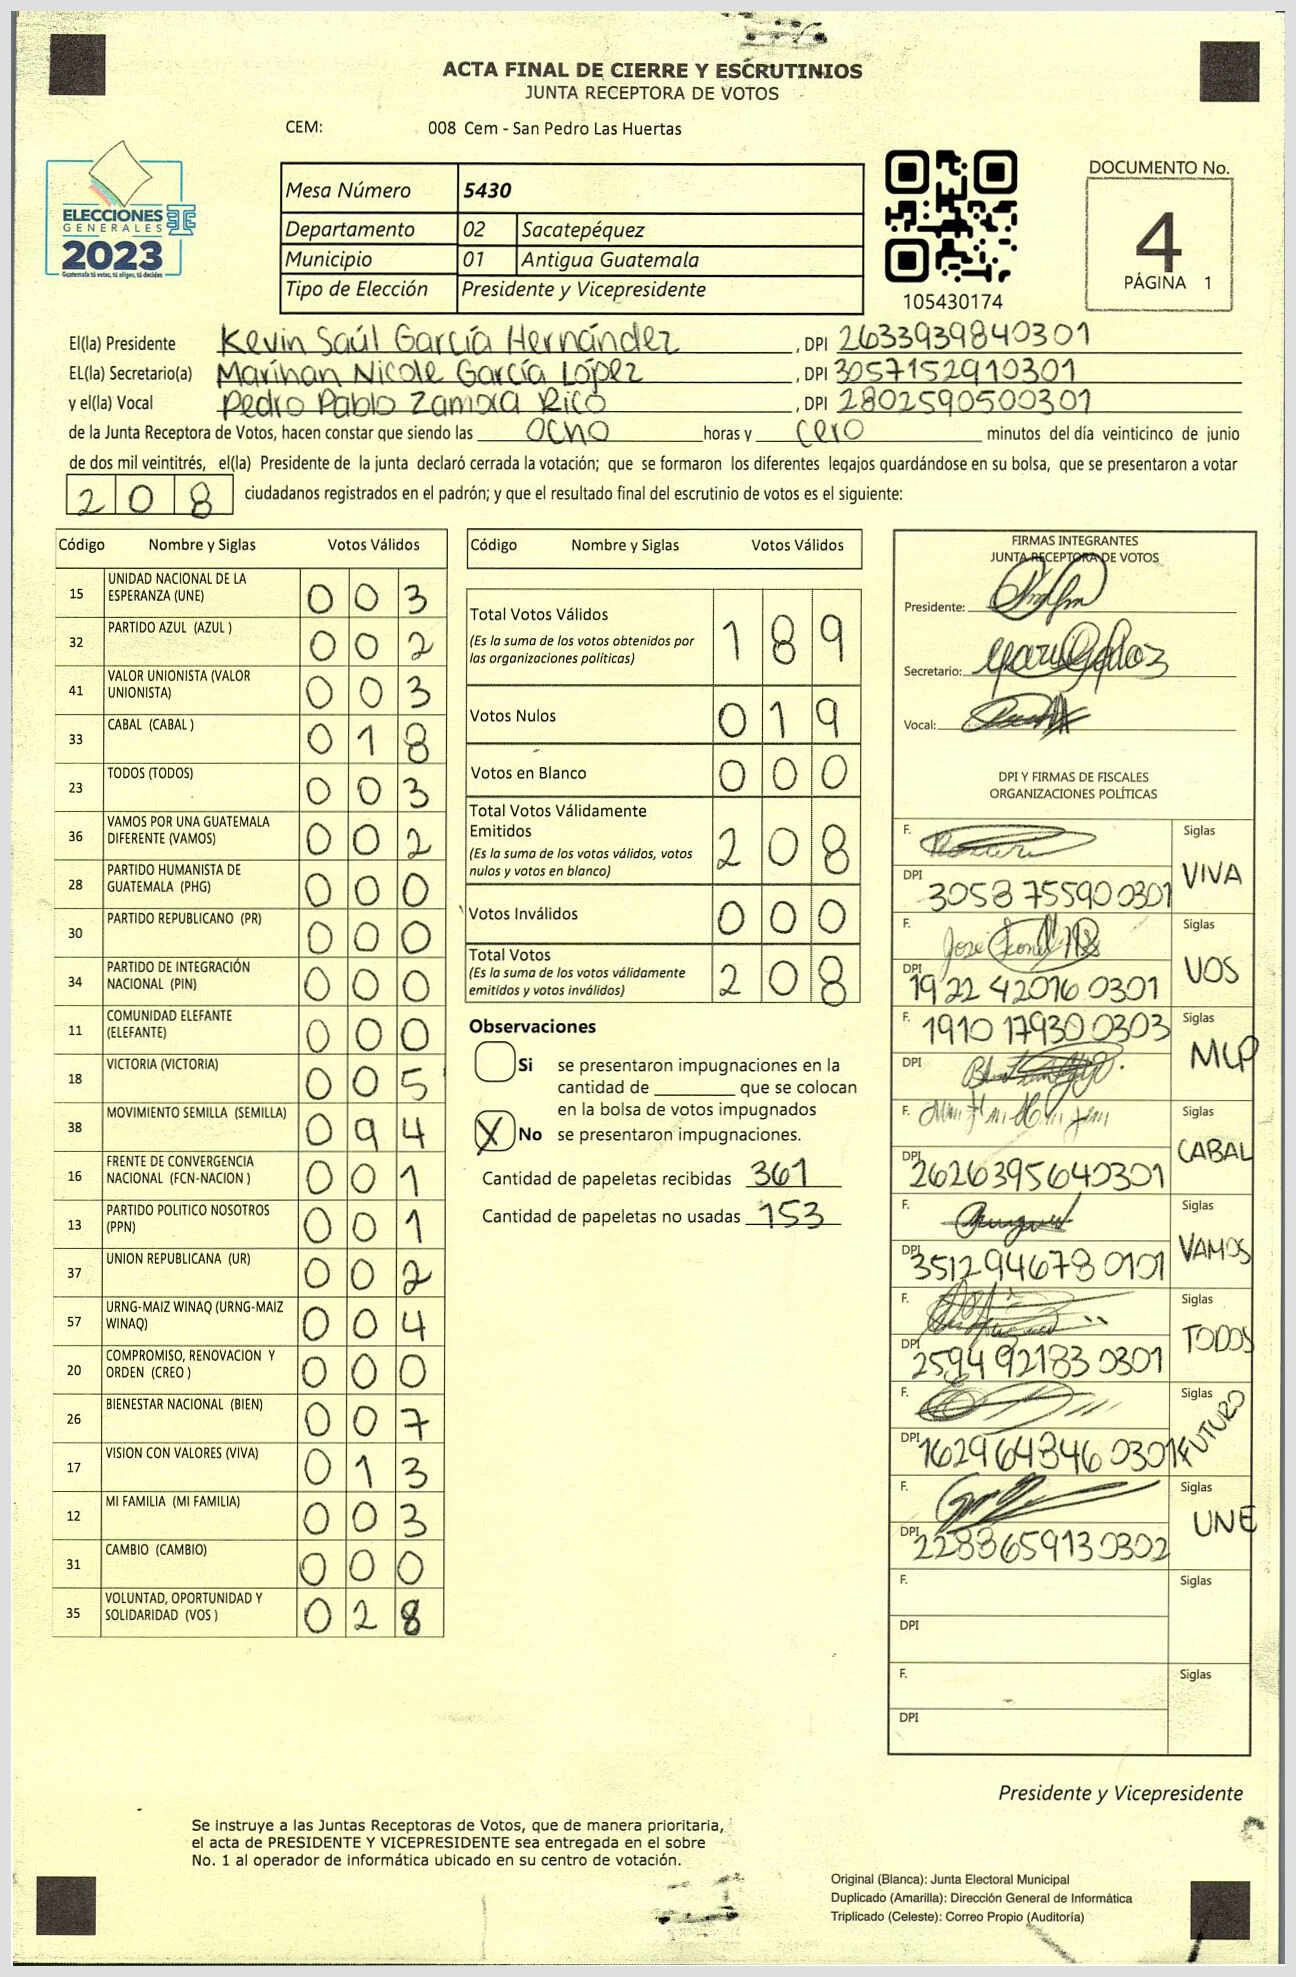 ACTA FINAL DE CIERRE Y ESCRUTINIOS
JUNTA RECEPTORA DE VOTOS
CEM: 008 Cem - San Pedro Las Huertas
ELECCIONES
GENERALES
2023
Guatemala tú votas, tú eliges, tú decides
Mesa Número 5430
Departamento 02 Sacatepéquez
Municipio 01 Antigua Guatemala
Tipo de Elección Presidente y Vicepresidente
105430174
DOCUMENTO No.
4
PÁGINA 1
El(la) Presidente Kevin Saúl García Hernández, DPI 2633939840301
EL(la) Secretario(a) Marihan Nicole García López, DPI 3057152910301
y el(la) Vocal Pedro Pablo Zamora Rico, DPI 2802590500301
de la Junta Receptora de Votos, hacen constar que siendo las ocho horas y cero minutos del día veinticinco de junio
de dos mil veintitrés, el(la) Presidente de la junta declaró cerrada la votación; que se formaron los diferentes legajos guardándose en su bolsa, que se presentaron a votar
208 ciudadanos registrados en el padrón; y que el resultado final del escrutinio de votos es el siguiente:
Código Nombre y Siglas Votos Válidos
15 UNIDAD NACIONAL DE LA ESPERANZA (UNE) 003
32 PARTIDO AZUL (AZUL ) 002
41 VALOR UNIONISTA (VALOR UNIONISTA) 003
33 CABAL (CABAL ) 018
23 TODOS (TODOS) 003
36 VAMOS POR UNA GUATEMALA DIFERENTE (VAMOS) 002
28 PARTIDO HUMANISTA DE GUATEMALA (PHG) 000
30 PARTIDO REPUBLICANO (PR) 000
34 PARTIDO DE INTEGRACIÓN NACIONAL (PIN) 000
11 COMUNIDAD ELEFANTE (ELEFANTE) 000
18 VICTORIA (VICTORIA) 005
38 MOVIMIENTO SEMILLA (SEMILLA) 094
16 FRENTE DE CONVERGENCIA NACIONAL (FCN-NACION ) 001
13 PARTIDO POLITICO NOSOTROS (PPN) 001
37 UNION REPUBLICANA (UR) 002
57 URNG-MAIZ WINAQ (URNG-MAIZ WINAQ) 004
20 COMPROMISO, RENOVACION Y ORDEN (CREO ) 000
26 BIENESTAR NACIONAL (BIEN) 007
17 VISION CON VALORES (VIVA) 013
12 MI FAMILIA (MI FAMILIA) 003
31 CAMBIO (CAMBIO) 000
35 VOLUNTAD, OPORTUNIDAD Y SOLIDARIDAD (VOS ) 028
Código Nombre y Siglas Votos Válidos
Total Votos Válidos 189
(Es la suma de los votos obtenidos por
las organizaciones políticas)
Votos Nulos 019
Votos en Blanco 000
Total Votos Válidamente
Emitidos 208
(Es la suma de los votos válidos, votos
nulos y votos en blanco)
Votos Inválidos 000
Total Votos 208
(Es la suma de los votos válidamente
emitidos y votos inválidos)
Observaciones
Si se presentaron impugnaciones en la
cantidad de ________ que se colocan
en la bolsa de votos impugnados
X No se presentaron impugnaciones.
Cantidad de papeletas recibidas 361
Cantidad de papeletas no usadas 153
FIRMAS INTEGRANTES
JUNTA RECEPTORA DE VOTOS
Presidente:
Secretario:
Vocal:
DPI Y FIRMAS DE FISCALES
ORGANIZACIONES POLÍTICAS
F. Siglas VIVA
DPI 3058 75590 0301
F. José Siglas VOS
DPI 1922 42016 0301
F. 1910 17930 0303 Siglas MLP
DPI
F. Siglas CABAL
DPI 2626395640301
F. Siglas VAMOS
DPI 351294678 0101
F. Siglas TODOS
DPI 2594 92183 0301
F. Siglas FUTURO
DPI 162964846 0301
F. Siglas UNE
DPI 228865913 0302
F. Siglas
DPI
F. Siglas
DPI
Presidente y Vicepresidente
Se instruye a las Juntas Receptoras de Votos, que de manera prioritaria,
el acta de PRESIDENTE Y VICEPRESIDENTE sea entregada en el sobre
No. 1 al operador de informática ubicado en su centro de votación.
Original (Blanca): Junta Electoral Municipal
Duplicado (Amarilla): Dirección General de Informática
Triplicado (Celeste): Correo Propio (Auditoría)